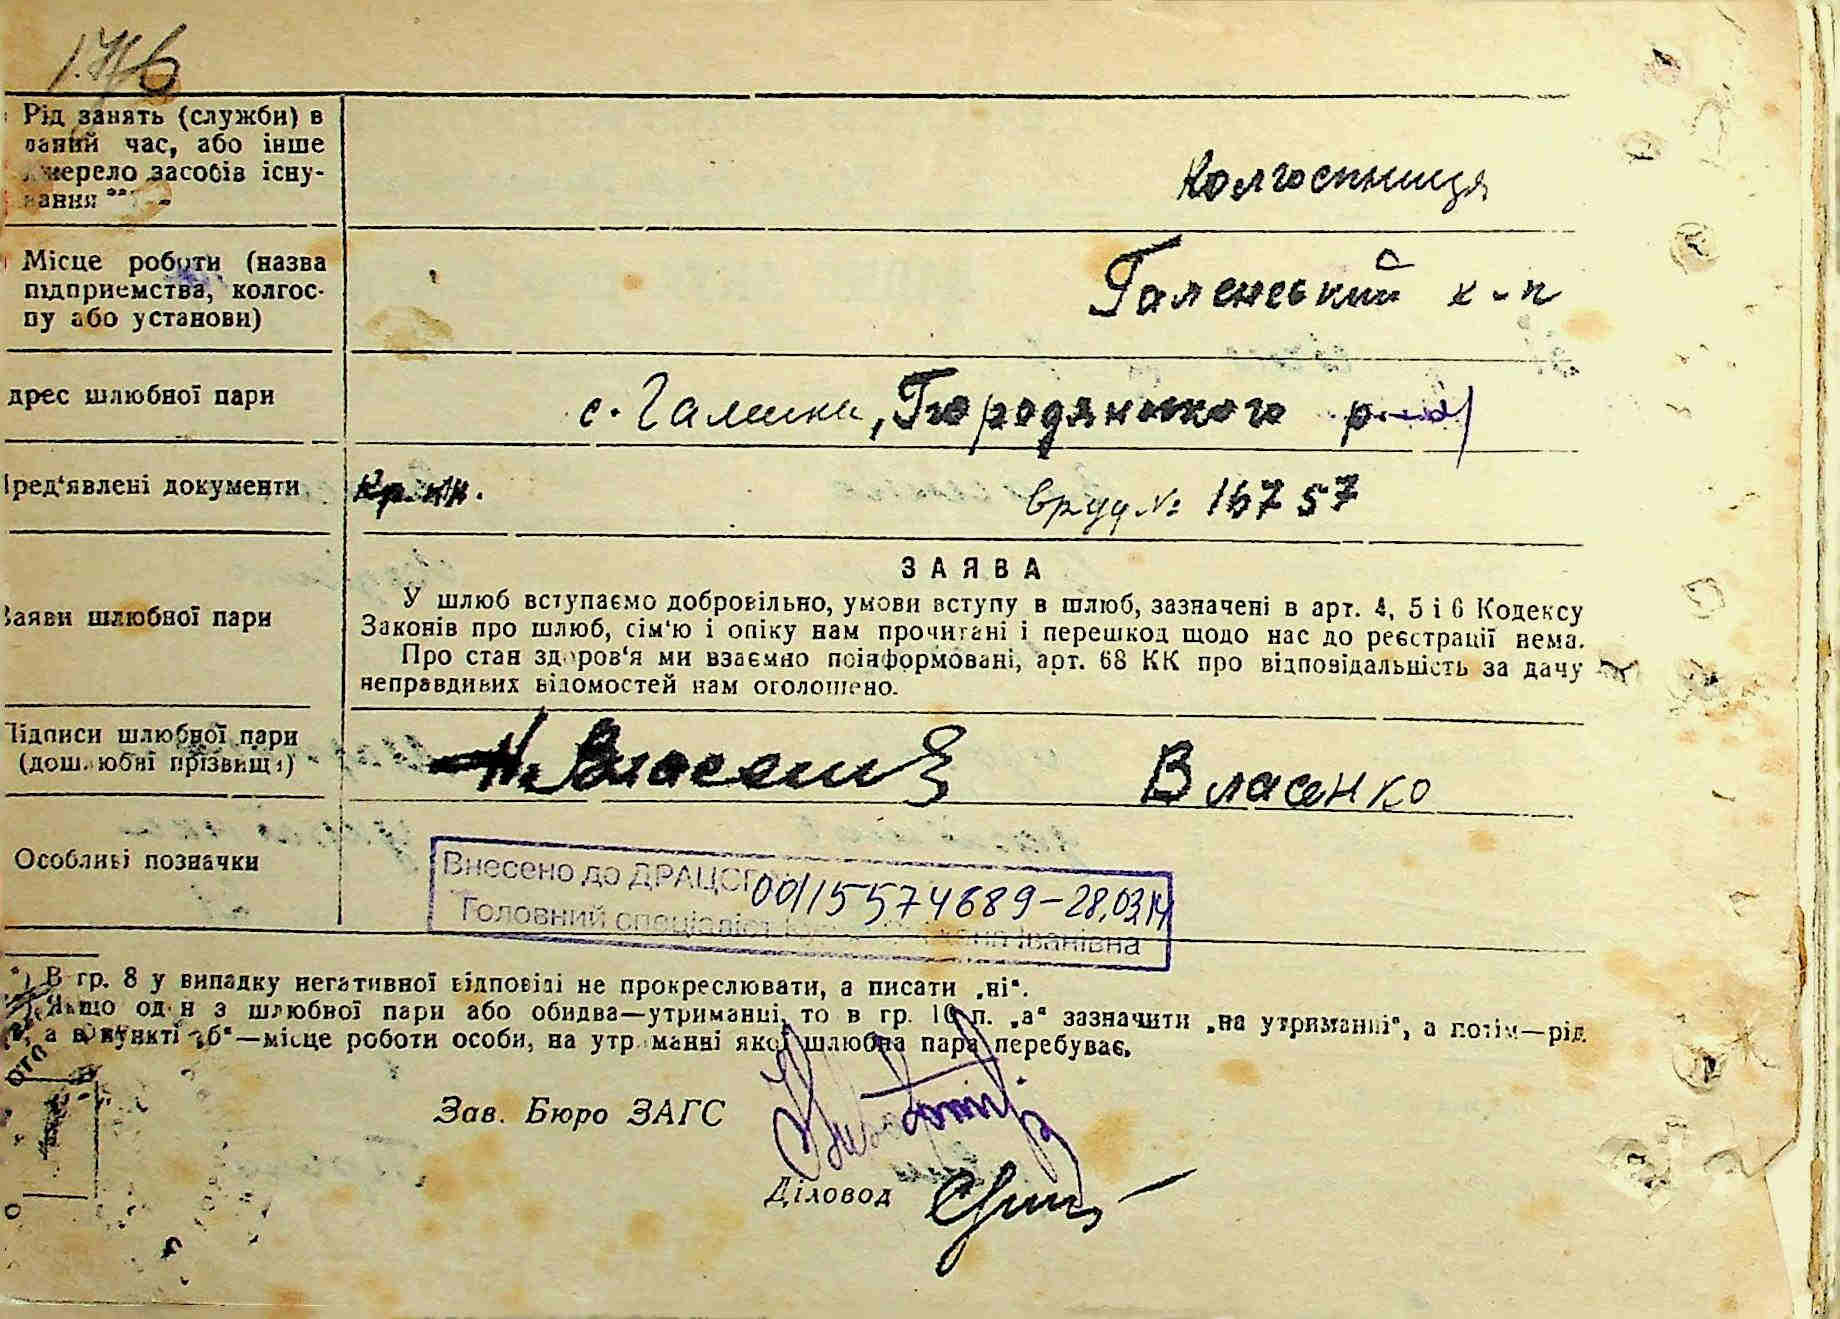 Рід занять (служби) в
даний час, або інше
джерело засобів існу-
вання
колгоспниця
Місце роботи (назва
підприємства, колгос-
пу або установи)
Галенський к-п
дрес шлюбної пари
с. Галинка, Бородянського р-ну
Пред'явлені документи
Кр. кн.
№ 16757
ЗАЯВА
Заяви шлюбної пари
У шлюб вступаємо добровільно, умови вступу в шлюб, зазначені в арт. 4, 5 і 6 Кодексу
Законів про шлюб, сім'ю і опіку нам прочитані і перешкод щодо нас до реєстрації нема.
Про стан здоров'я ми взаємно поінформовані, арт. 68 КК про відповідальність за дачу
неправдивих відомостей нам оголошено.
Підписи шлюбної пари
(дошлюбні прізвища)
Власенко
Особливі позначки
Внесено до ДРАЦСГ 00115574689-28,03,14
Головний спеціаліст Іванівна
*) В гр. 8 у випадку негативної відповіді не прокреслювати, а писати „ні“.
Якщо один з шлюбної пари або обидва—утриманці, то в гр. 10 п. „а“ зазначити „на утриманні“, а потім—рід
а в пункті „б“—місце роботи особи, на утриманні якої шлюбна пара перебуває.
Зав. Бюро ЗАГС
Діловод